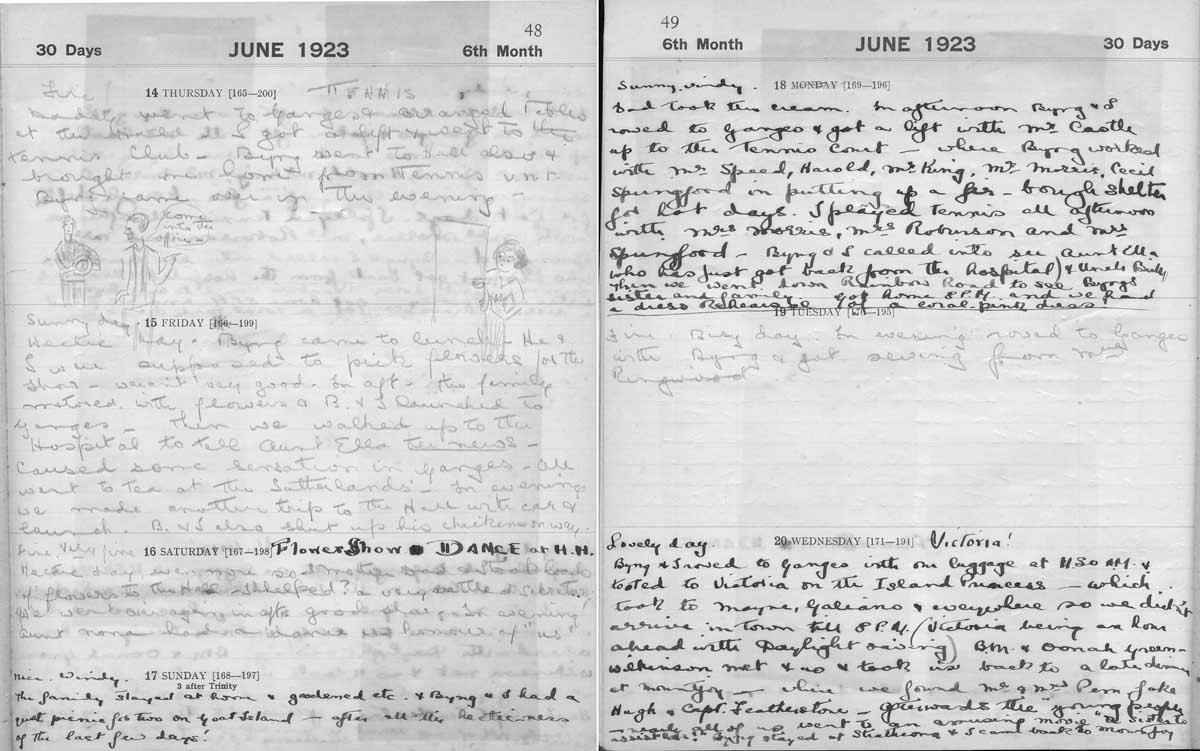 48
30 Days JUNE 1923 6th Month
Fine 14 THURSDAY [165—200] TENNIS
went to Ganges & arranged Tables
at the I got a lift & went to the
Tennis Club — Byng went to Hall also &
brought me home from Tennis
Byng came over in the evening —
Come into the office
Sunny day 15 FRIDAY [166—199]
Hectic day. Byng came to lunch — He &
I were supposed to pick flowers for the
Show — weren't very good. In aft — the family
motored with flowers & B. & I launched to
Ganges — Then we walked up to the
Hospital to tell Aunt Ella the news —
Caused some sensation in Ganges — All
went to Tea at the Sutherlands — In evening
we made another trip to the Hall with car &
launch. B. & I also shut up his chickens on way.
Fine. 16 SATURDAY [167—198] Flower Show DANCE at H.H.
Hectic day even more so
of flowers to the Hall — I helped? a very
We went over again in aft. good show. In evening
Aunt Nona had a in honour of "us"
Nice. Windy. 17 SUNDAY [168—197]
3 after Trinity
The family stayed at home & gardened etc. & Byng & I had a
picnic for two on Goat Island — after all the hecticness
of the last few days!
49
6th Month JUNE 1923 30 Days
Sunny, windy. 18 MONDAY [169—196]
Dad took the cream. In afternoon Byng & I
rowed to Ganges & got a lift with Mr Castle
up to the Tennis Court — where Byng worked
with Mr Speed, Harold, Mr King, Mr Morris, Cecil
Springford in putting up a fir-bough shelter
for hot days. I played Tennis all afternoon
with Mrs Morris, Mrs Robinson and Mrs
Springford — Byng & I called into see Aunt Ella
who has just got back from the hospital) & Uncle
Then we went down Rainbow Road to see Byng's
sister and family. Got home 8 P.M. and we had
a dress Rehearsal of a coral-pink dress!
19 TUESDAY [170—195]
Fine. Busy day. In evening rowed to Ganges
with Byng & got sewing from Mrs
Ringwood.
Lovely day. 20 WEDNESDAY [171—194] Victoria!
Byng & I rowed to Ganges with our luggage at 11.30 AM. &
tooted to Victoria on the Island Princess — which
took to Mayne, Galiano & everywhere so we didn't
arrive in town till 8 P.M. (Victoria being an hour
ahead with Daylight saving) B.M. & Oonah Green-
Wilkinson met & us & took us back to a late dinner
at Mountjoy — where we found Mr & Mrs Pem
Hugh & Capt. Featherstone — afterwards the "young people
— nearly all of us went to an amusing movie "
Byng stayed at Strathcona & I came back to Mountjoy